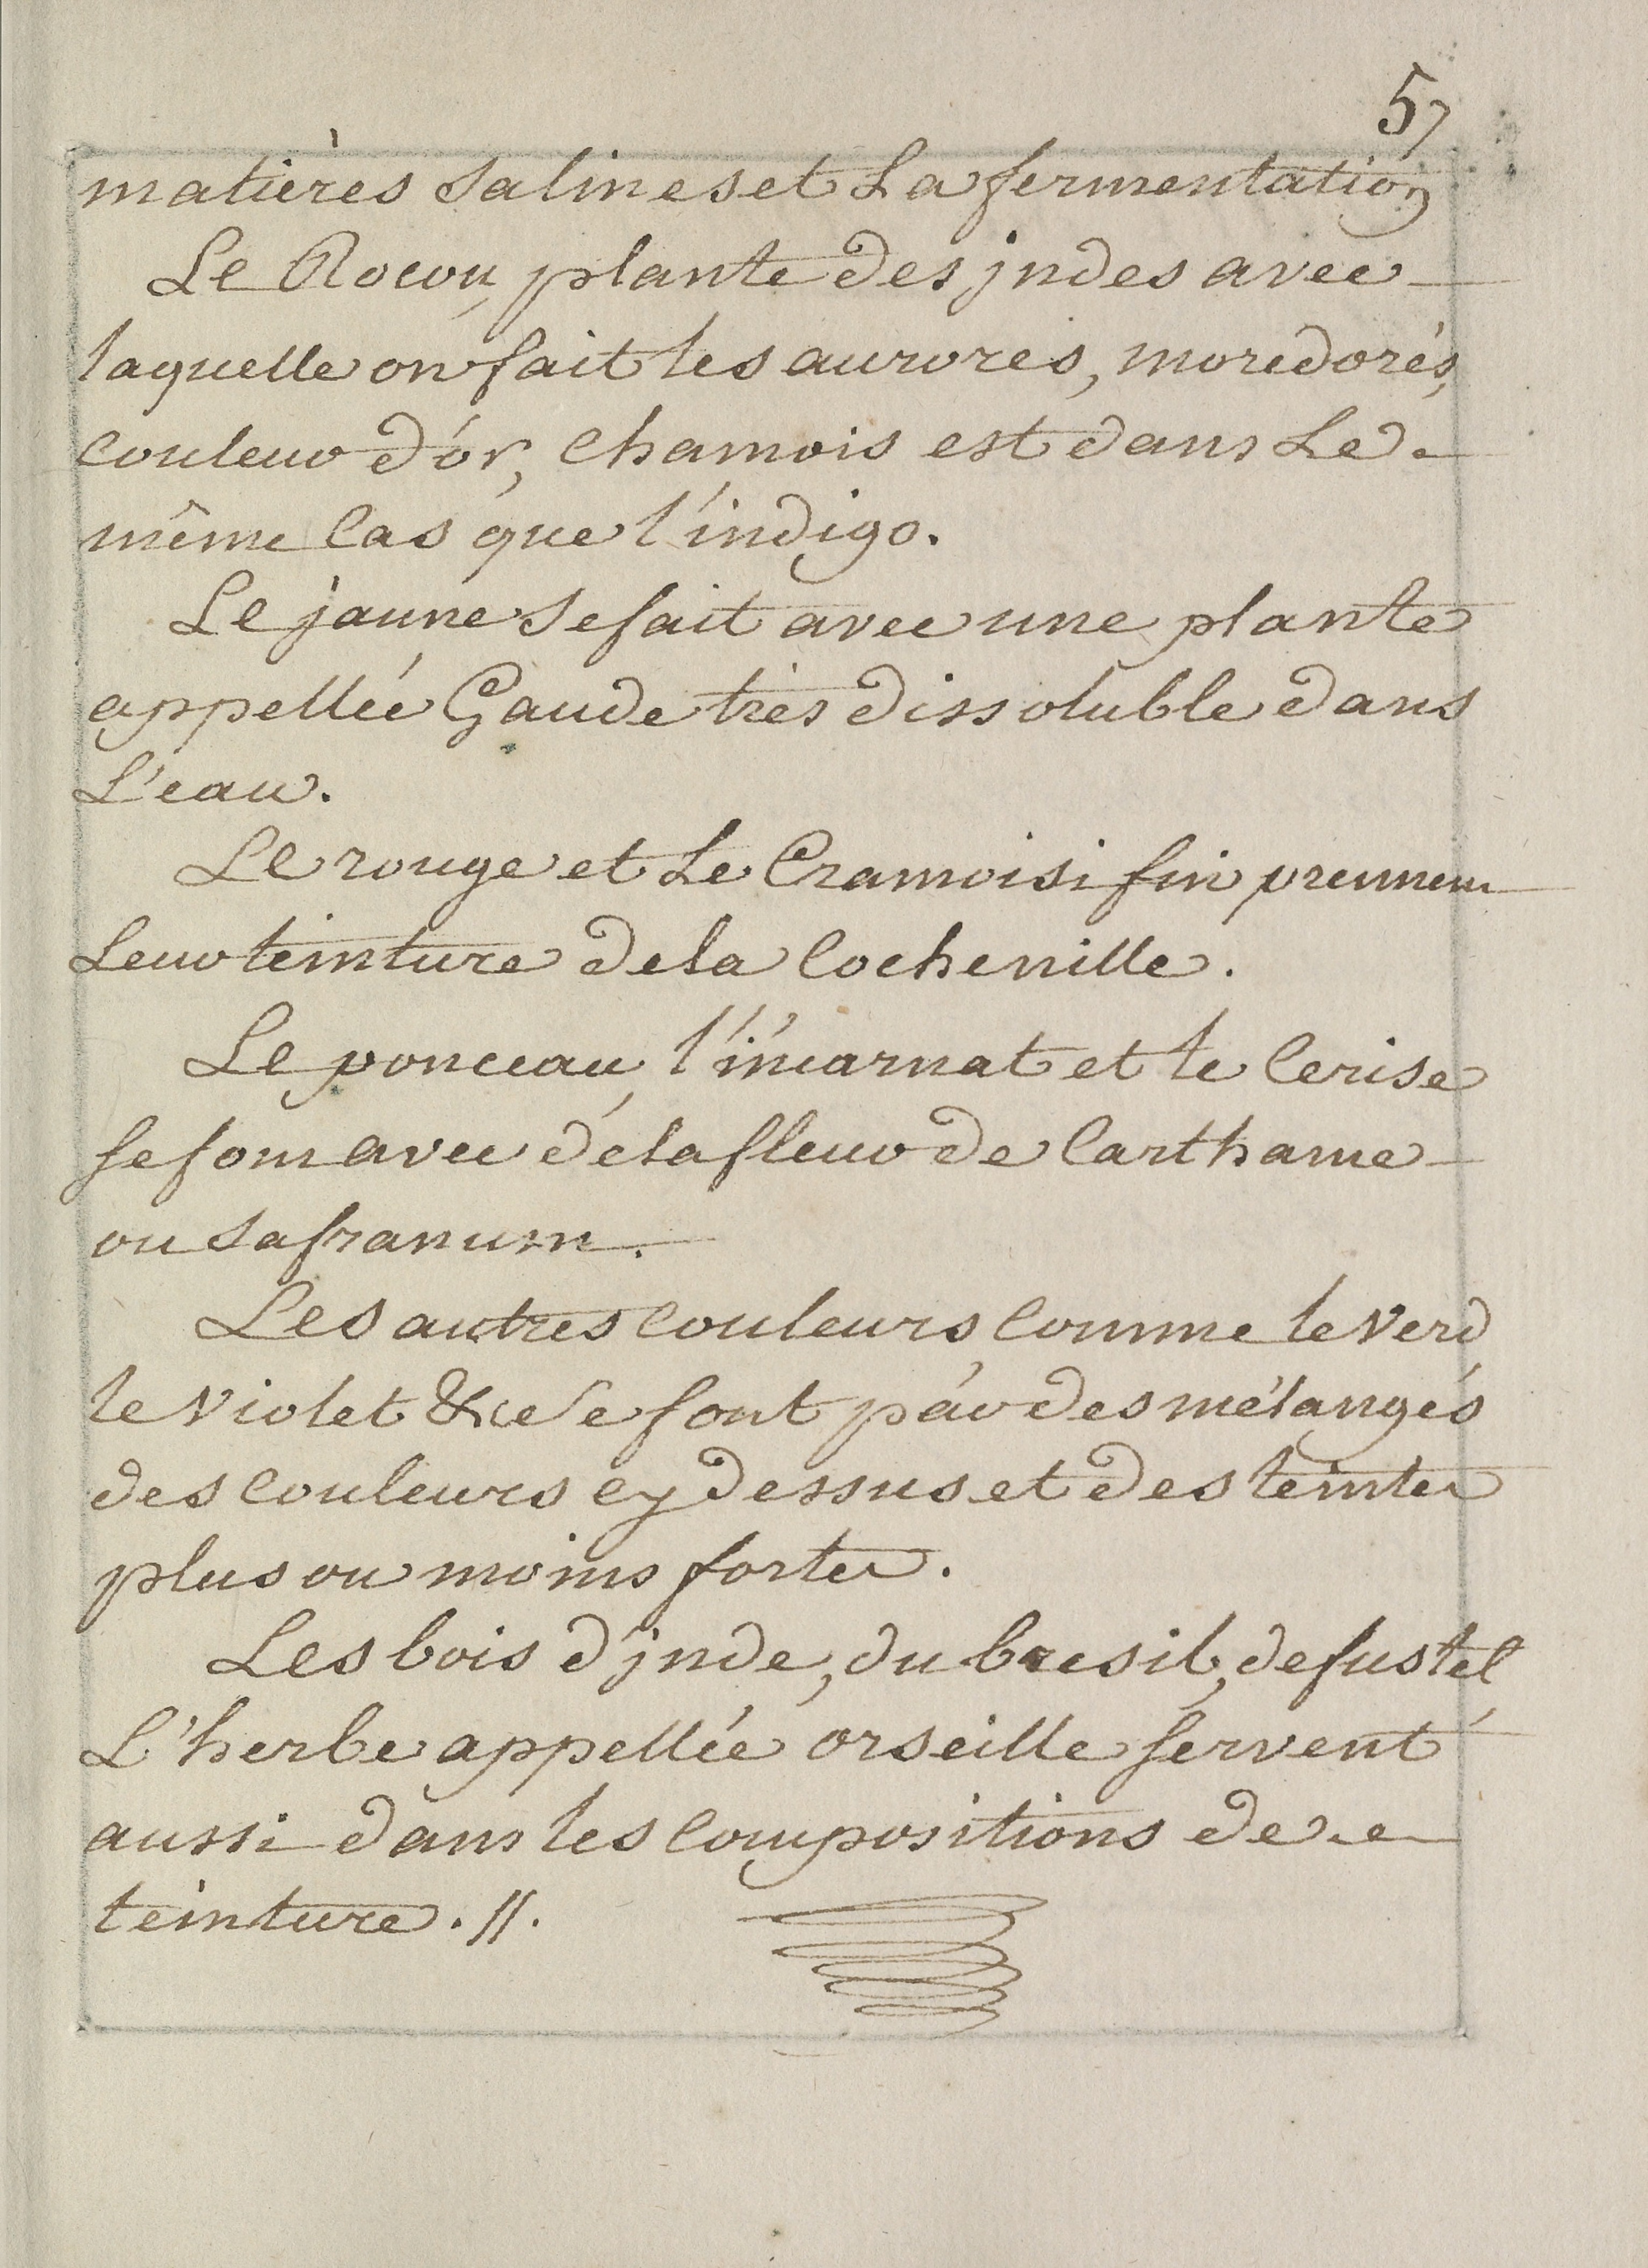 57
matières salines et La fermentation
Le Rocou, plante des jndes avec
laquelle on fait les aurores, moredorés,
couleur d'or, chamois est dans Le
même cas que l'indigo.
Le jaune se fait avec une plante
appellée Gaude très dissoluble dans
L'eau.
Le rouge et Le Cramoisi fin prennent
Leur teinture de la cochenille.
Le ponceau, l'incarnat et le cerise
se font avec de la fleur de Carthame
ou safranum.
Les autres couleurs comme le verd
le violet &c se font par des mélanges
des couleurs cy dessus et des teintes
plus ou moins fortes.
Les bois d'jnde, du bresil, de fustel
L'herbe appellée orseille servent
aussi dans les compositions de
teinture. //.